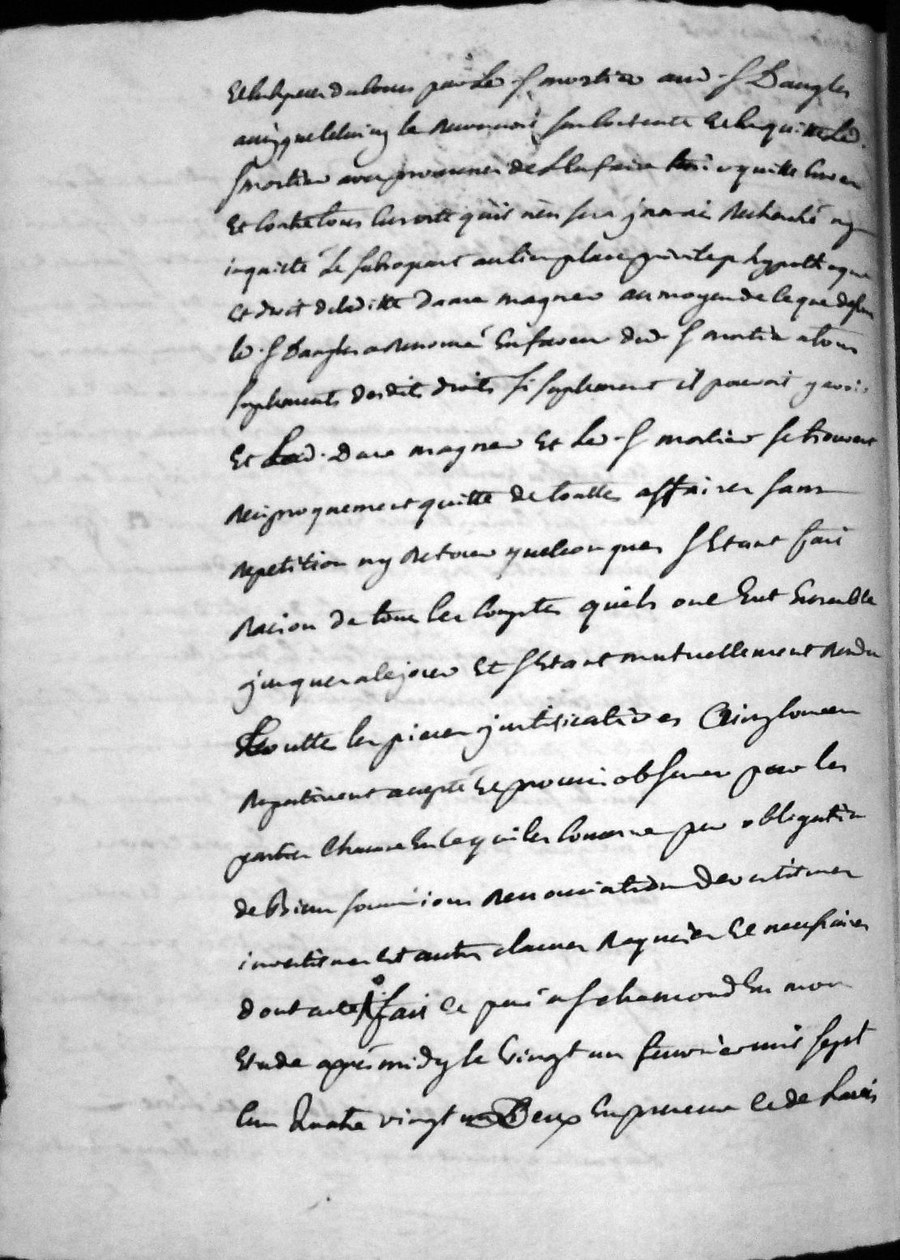 par Led. S. mortier aud. S. Dangles
ainsy que le reconnoit Et le quitte Led.
S. mortier avec promesse de le faire tenir quitte Envers
Et contre tous En sorte qu'il n'en sera jamais Recherché ny
inquieté Le subrogeant au lieu place privilege hypotheque
Et droit de laditte Dame magner au moyen de ce que dessus
led. S. Dangles a Renoncé En faveur dud. S. mortier a tous
suplements desdits droits si suplement il pouvoit y avoir
Et Lad. Dame magner Et led. S. mortier se trouvent
Reciproquement quitte de touttes affaires sans
Repetition ny Retour quelconques s'Etant fait
Raison de tous les comptes quils ont Eut Ensemble
jusques a ce jour Et s'Etant mutuellement Rendu
touttes les pieces justificatives Ainsy convenu
Respectivement accepté Et promis observer par les
parties Chacune En ce qui les concerne par obligation
de Biens soumissions Renonciations
et autres clauses Requises Et necessaires
dont acte fait Et passé a St chamond En mon
Etude aprés midy le vingt un fevrier mil sept
Cens Quatre vingt Deux En presence de